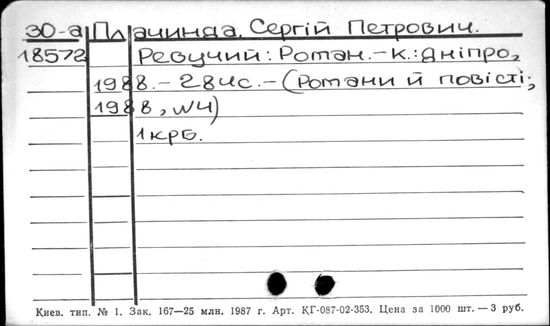 30-а Плачинда, Сергій Петрович.
18572 Ревучий: Роман. - К.: Дніпро,
1988. - 284с. - (Романи й повісті;
1988, №4)
1 крб.
Киев. тип. № 1. Зак. 167—25 млн. 1987 г. Арт. КГ-087-02-353. Цена за 1000 шт. — 3 руб.